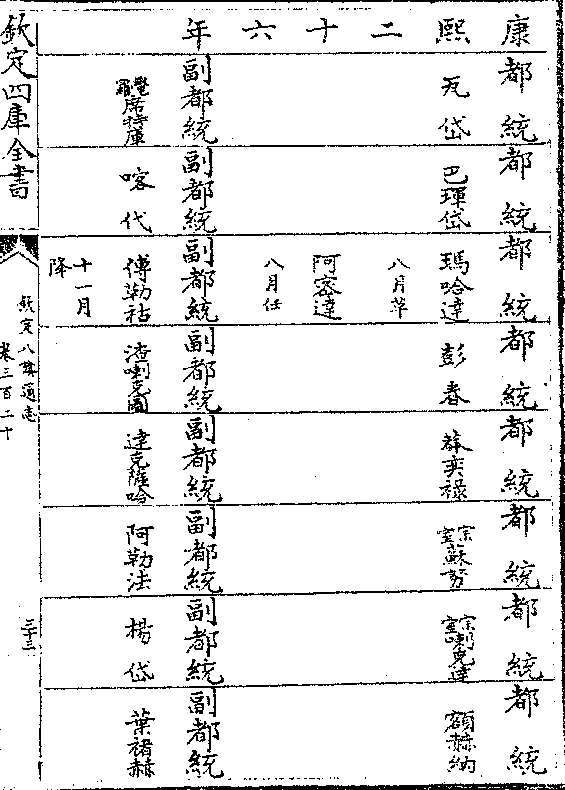 康熙二十六年
都統
瓦岱
副都統
覺羅席特庫
都統
巴琿岱
副都統
喀代
都統
瑪哈達
八月革
阿密達
八月任
副都統
傅勒祜
十一月
降
都統
彭春
副都統
渣喇克圖
都統
莽奕祿
副都統
達克薩哈
都統
宗室蘇努
副都統
阿勒法
都統
宗室喇克達
副都統
楊岱
都統
額赫納
副都統
葉褚赫
欽定四庫全書
欽定八旗通志
卷三百二十
三十三